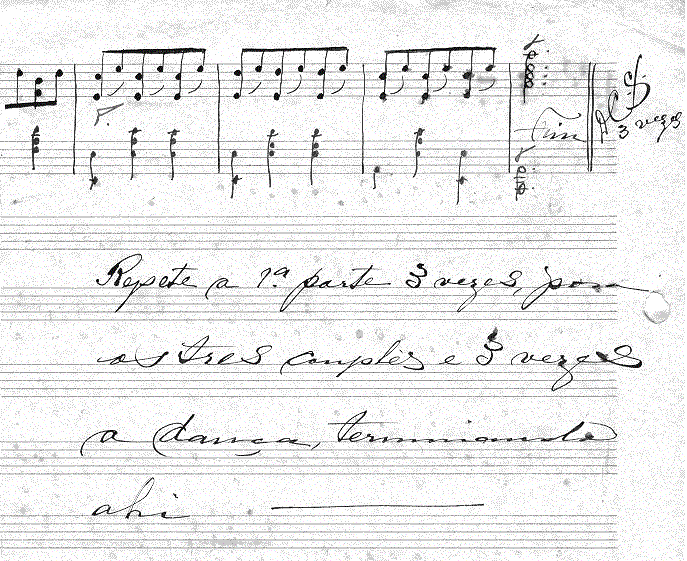 Fim
DC
3 vezes
Repete a 1ª parte 3 vezes, para
os tres couplés e 3 vezes
a dança, terminando
ahi